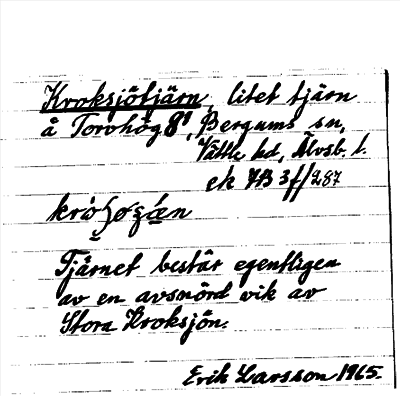 Kroksjötjärn, litet tjärn
å Torvhög 8¹, Bergums sn,
Vättle hd, Älvsb. l.
ek 7B 3f/287
Tjärnet består egentligen
av en avsnörd vik av
Stora Kroksjön.
Erik Larsson 1965.